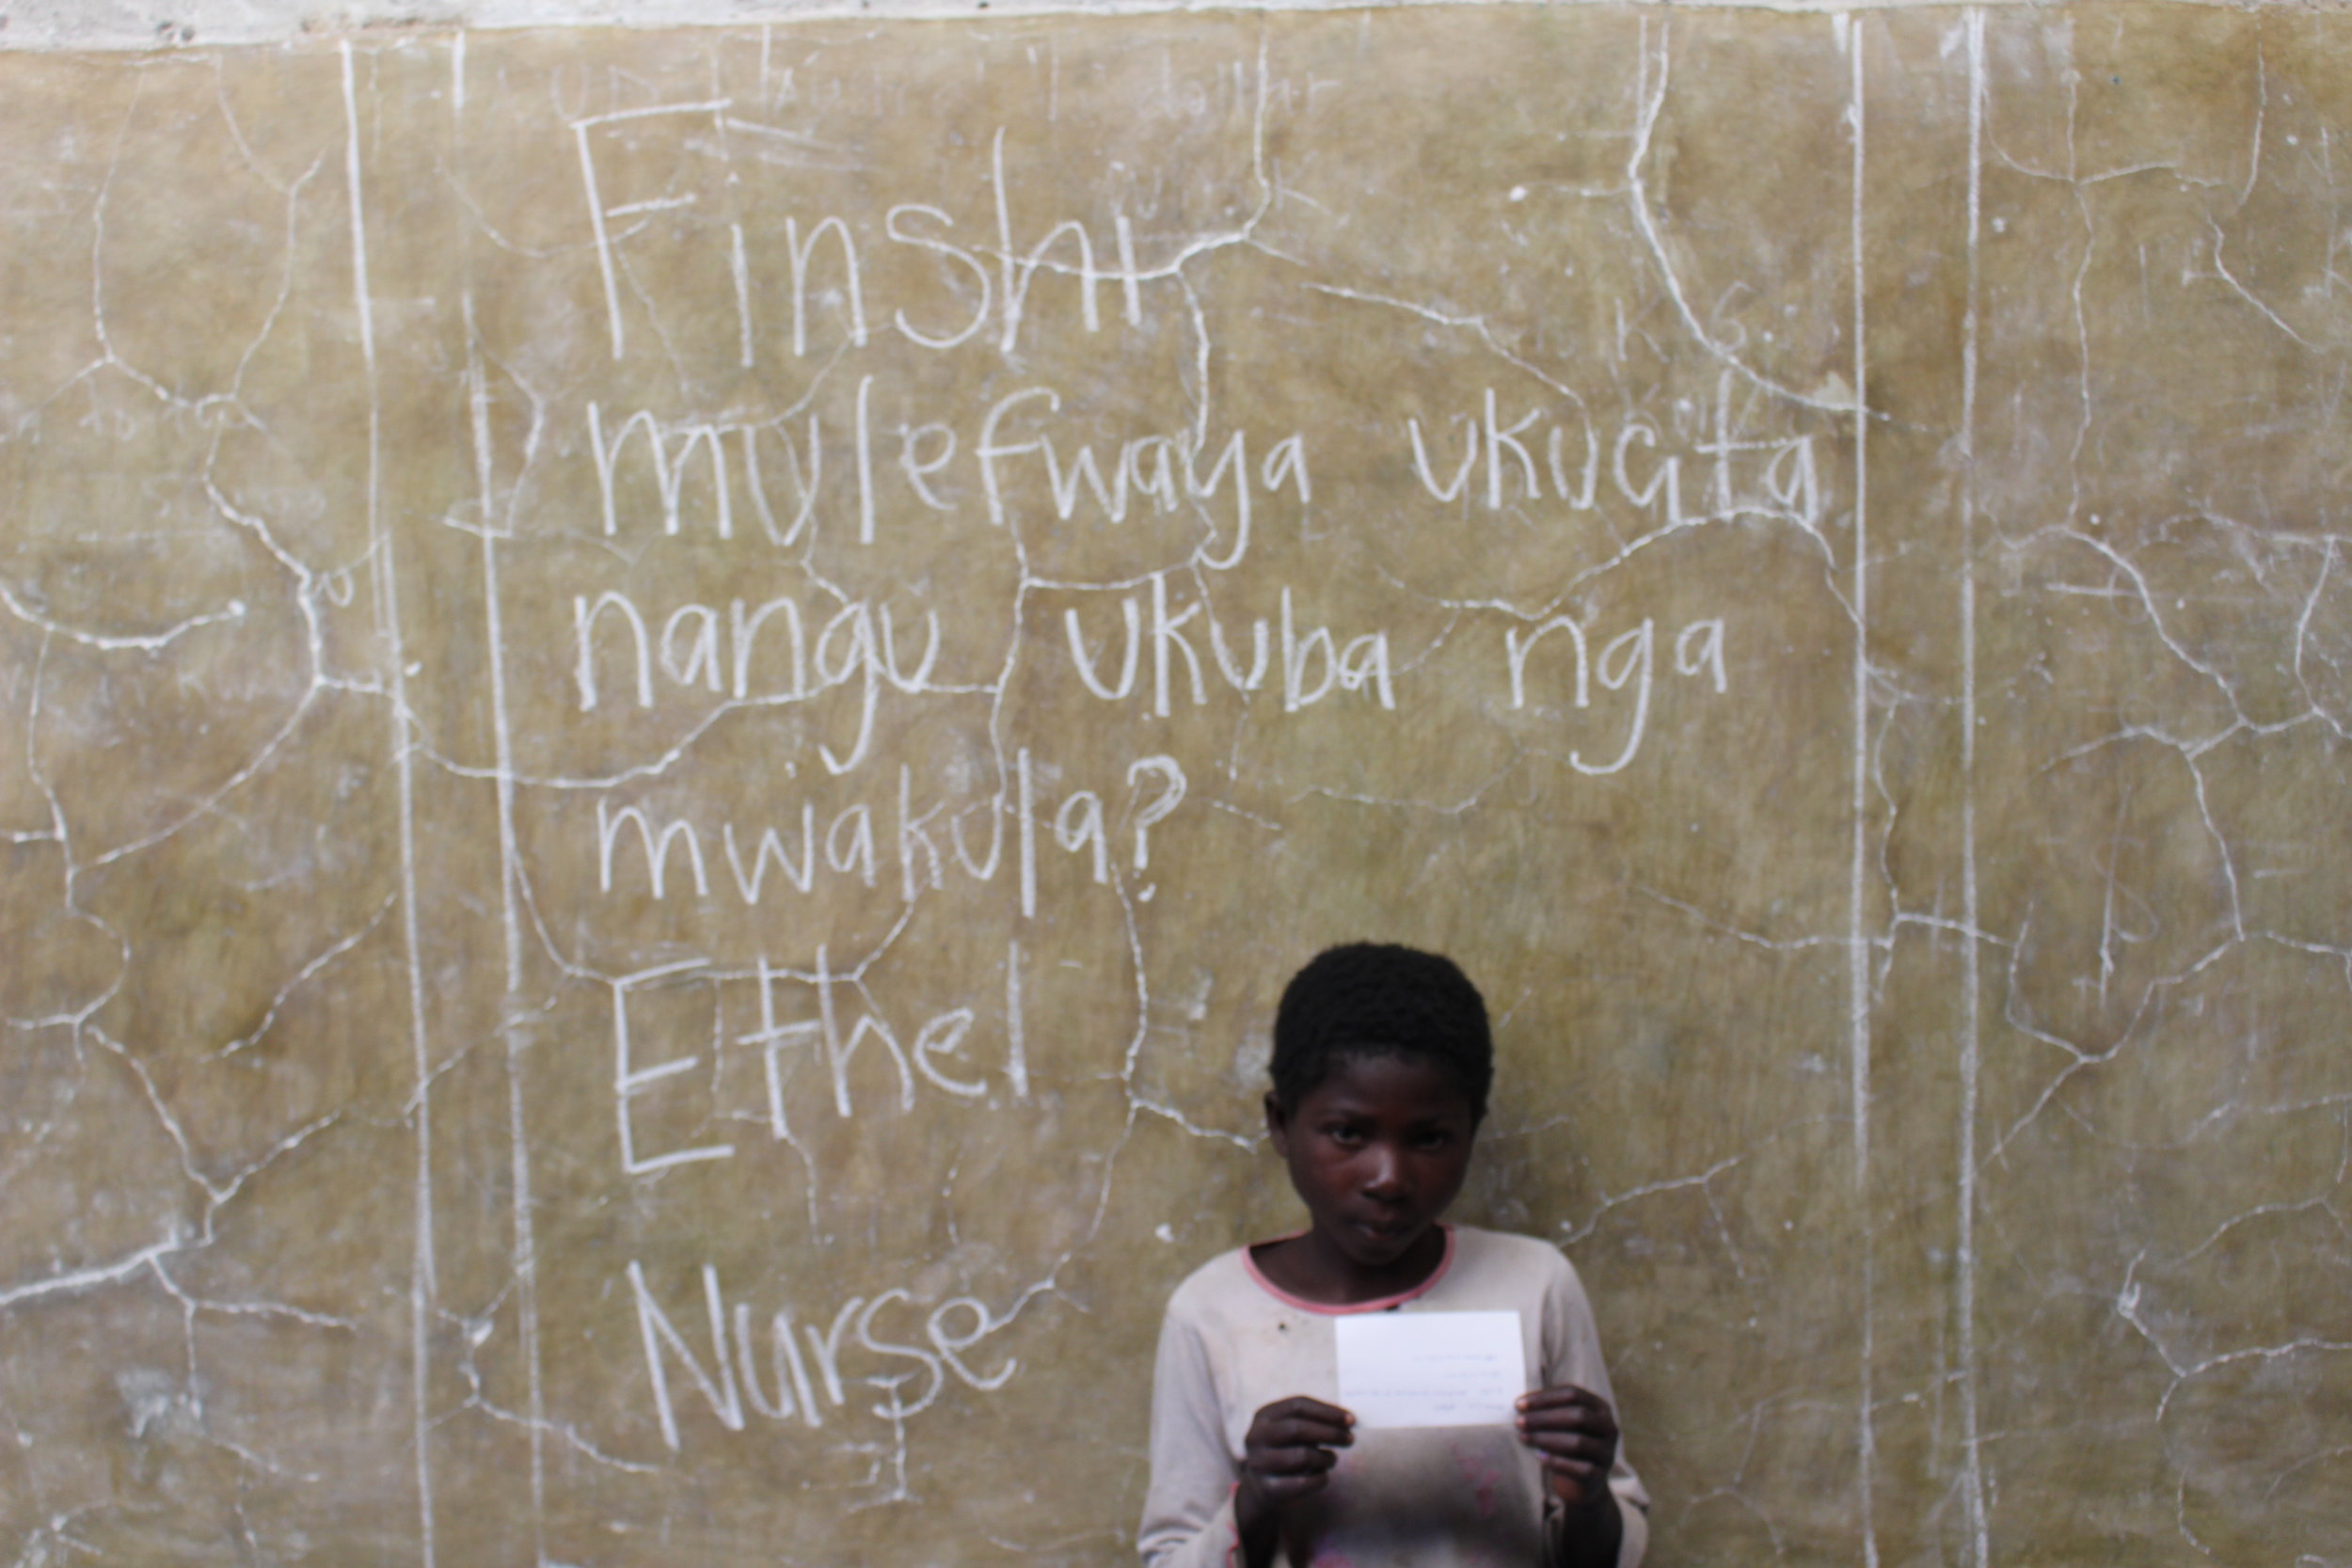 Finshi
mulefwaya ukucita
nangu ukuba nga
mwakula?
Ethel
Nurse